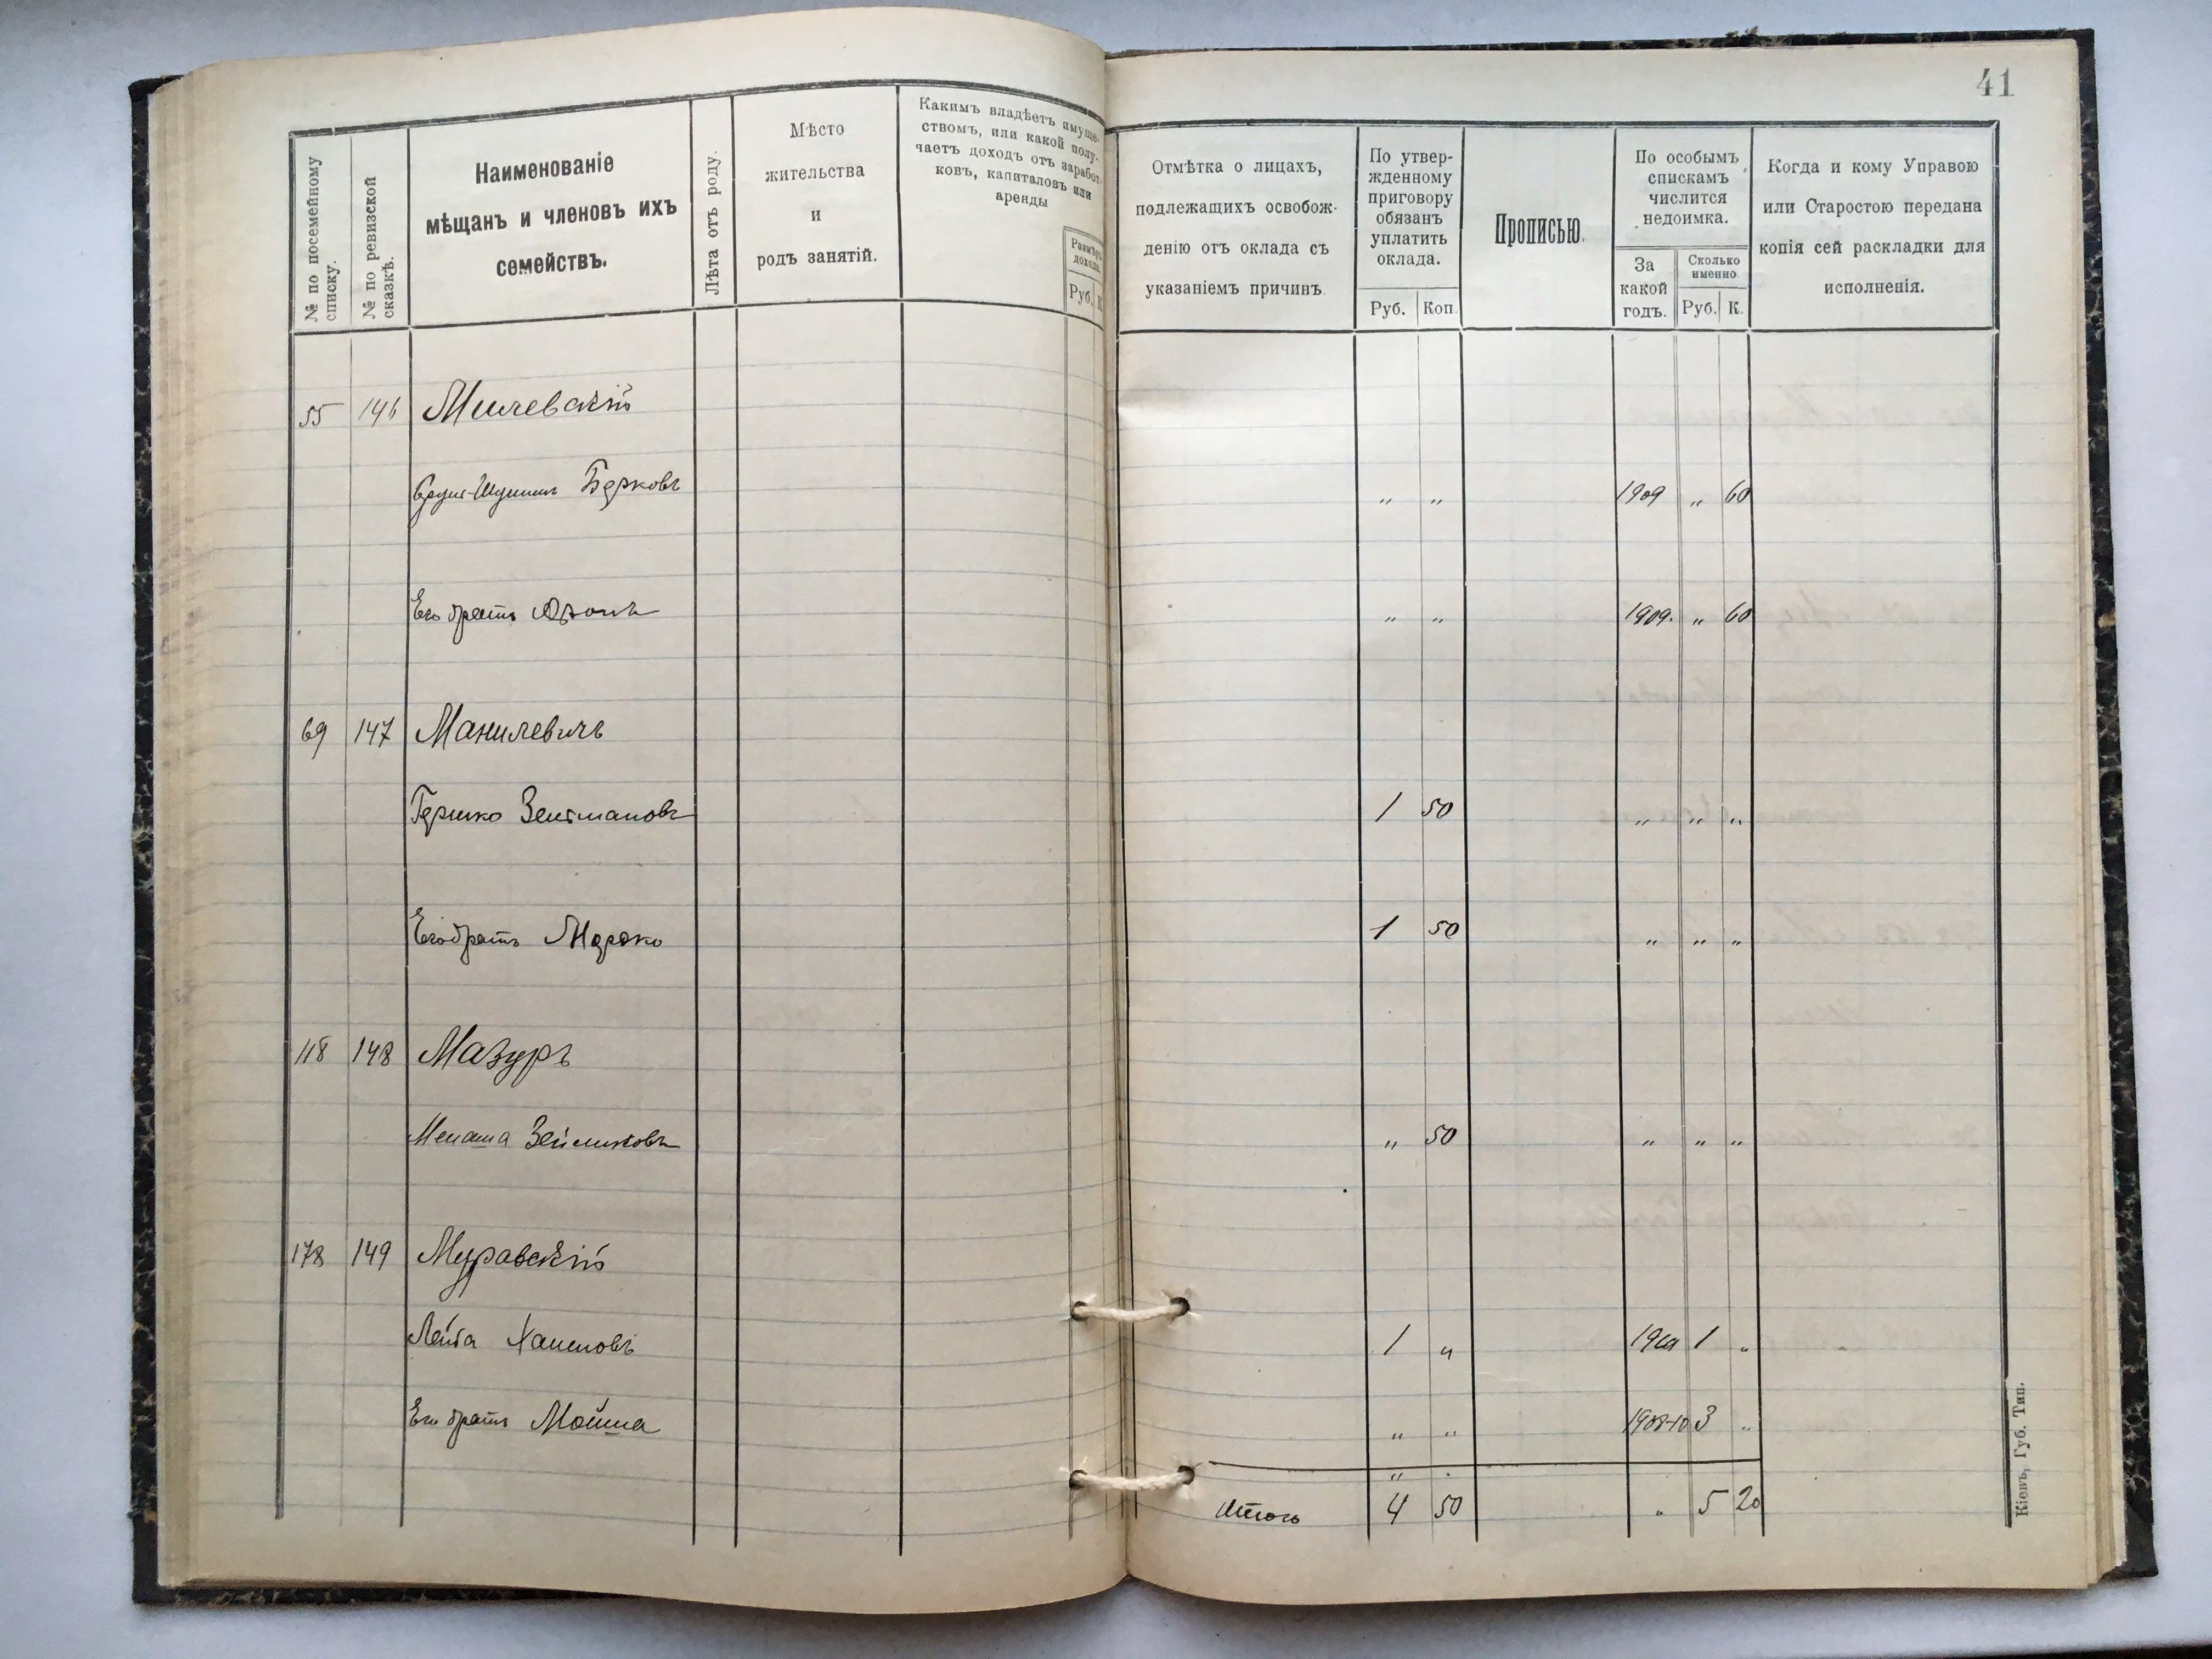 41
№ по посемейному
списку.
№ по ревизской
сказкѣ.
Наименованіе
мѣщанъ и членовъ ихъ
семействъ.
Лѣта отъ роду.
Мѣсто
жительства
и
родъ занятій.
Какимъ владѣетъ имуще-
ствомъ, или какой полу-
чаетъ доходъ отъ заработ-
ковъ, капиталовъ или
аренды
Размѣръ
дохода.
Руб. К.
Отмѣтка о лицахъ,
подлежащихъ освобож-
денію отъ оклада съ
указаніемъ причинъ
По утвер-
жденному
приговору
обязанъ
уплатить
оклада.
Руб. Коп.
Прописью.
По особымъ
спискамъ
числится
недоимка.
За
какой
годъ.
Сколько
именно
Руб. К.
Когда и кому Управою
или Старостою передана
копія сей раскладки для
исполненія.
55 146 Милевскій
Берковъ „ „ 1909 „ 60
Его братъ „ „ 1909. „ 60
69 147 Манилевичъ
Гершко Зельмановъ 1 50 „ „ „
Его братъ Мордко 1 50 „ „ „
118 148 Мазуръ
Менаша Зейликовъ „ 50 „ „ „
178 149 Муравскій
Лейба Хаимовъ 1 „ 1 „
Его братъ Мойша „ „ 1908-10 3 „
„
Итого 4 50 „ 5 20
Кіевъ, Губ. Тип.